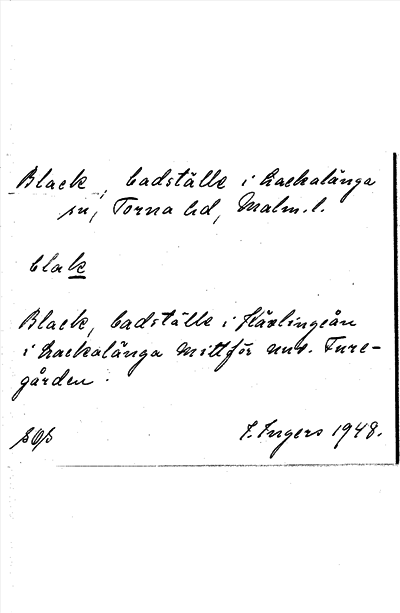 Black, badställe i Lackalänga
sn, Torna hd, Malm. l.
blak
Black, badställe i Kävlingeån
i Lackalänga mittför nuv. Ture-
gården.
I. Ingers 1948.